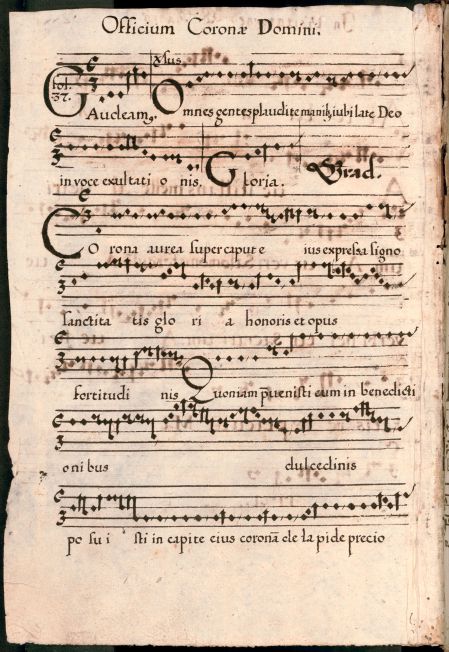 Officium Coronæ Domini.
℣sus
fol. 37.
Gaudeamꝰ. Omnes gentes plaudite manibꝫ iubilate Deo
in voce exultati o nis. Gloria. Grad.
Co rona aurea super caput e ius expressa signo
sanctita tis glo ri a honoris et opus
fortitudi nis Quoniam p̄uenisti eum in benedicti
oni bus dulcedinis
po su i sti in capite eius coronā de la pide precio